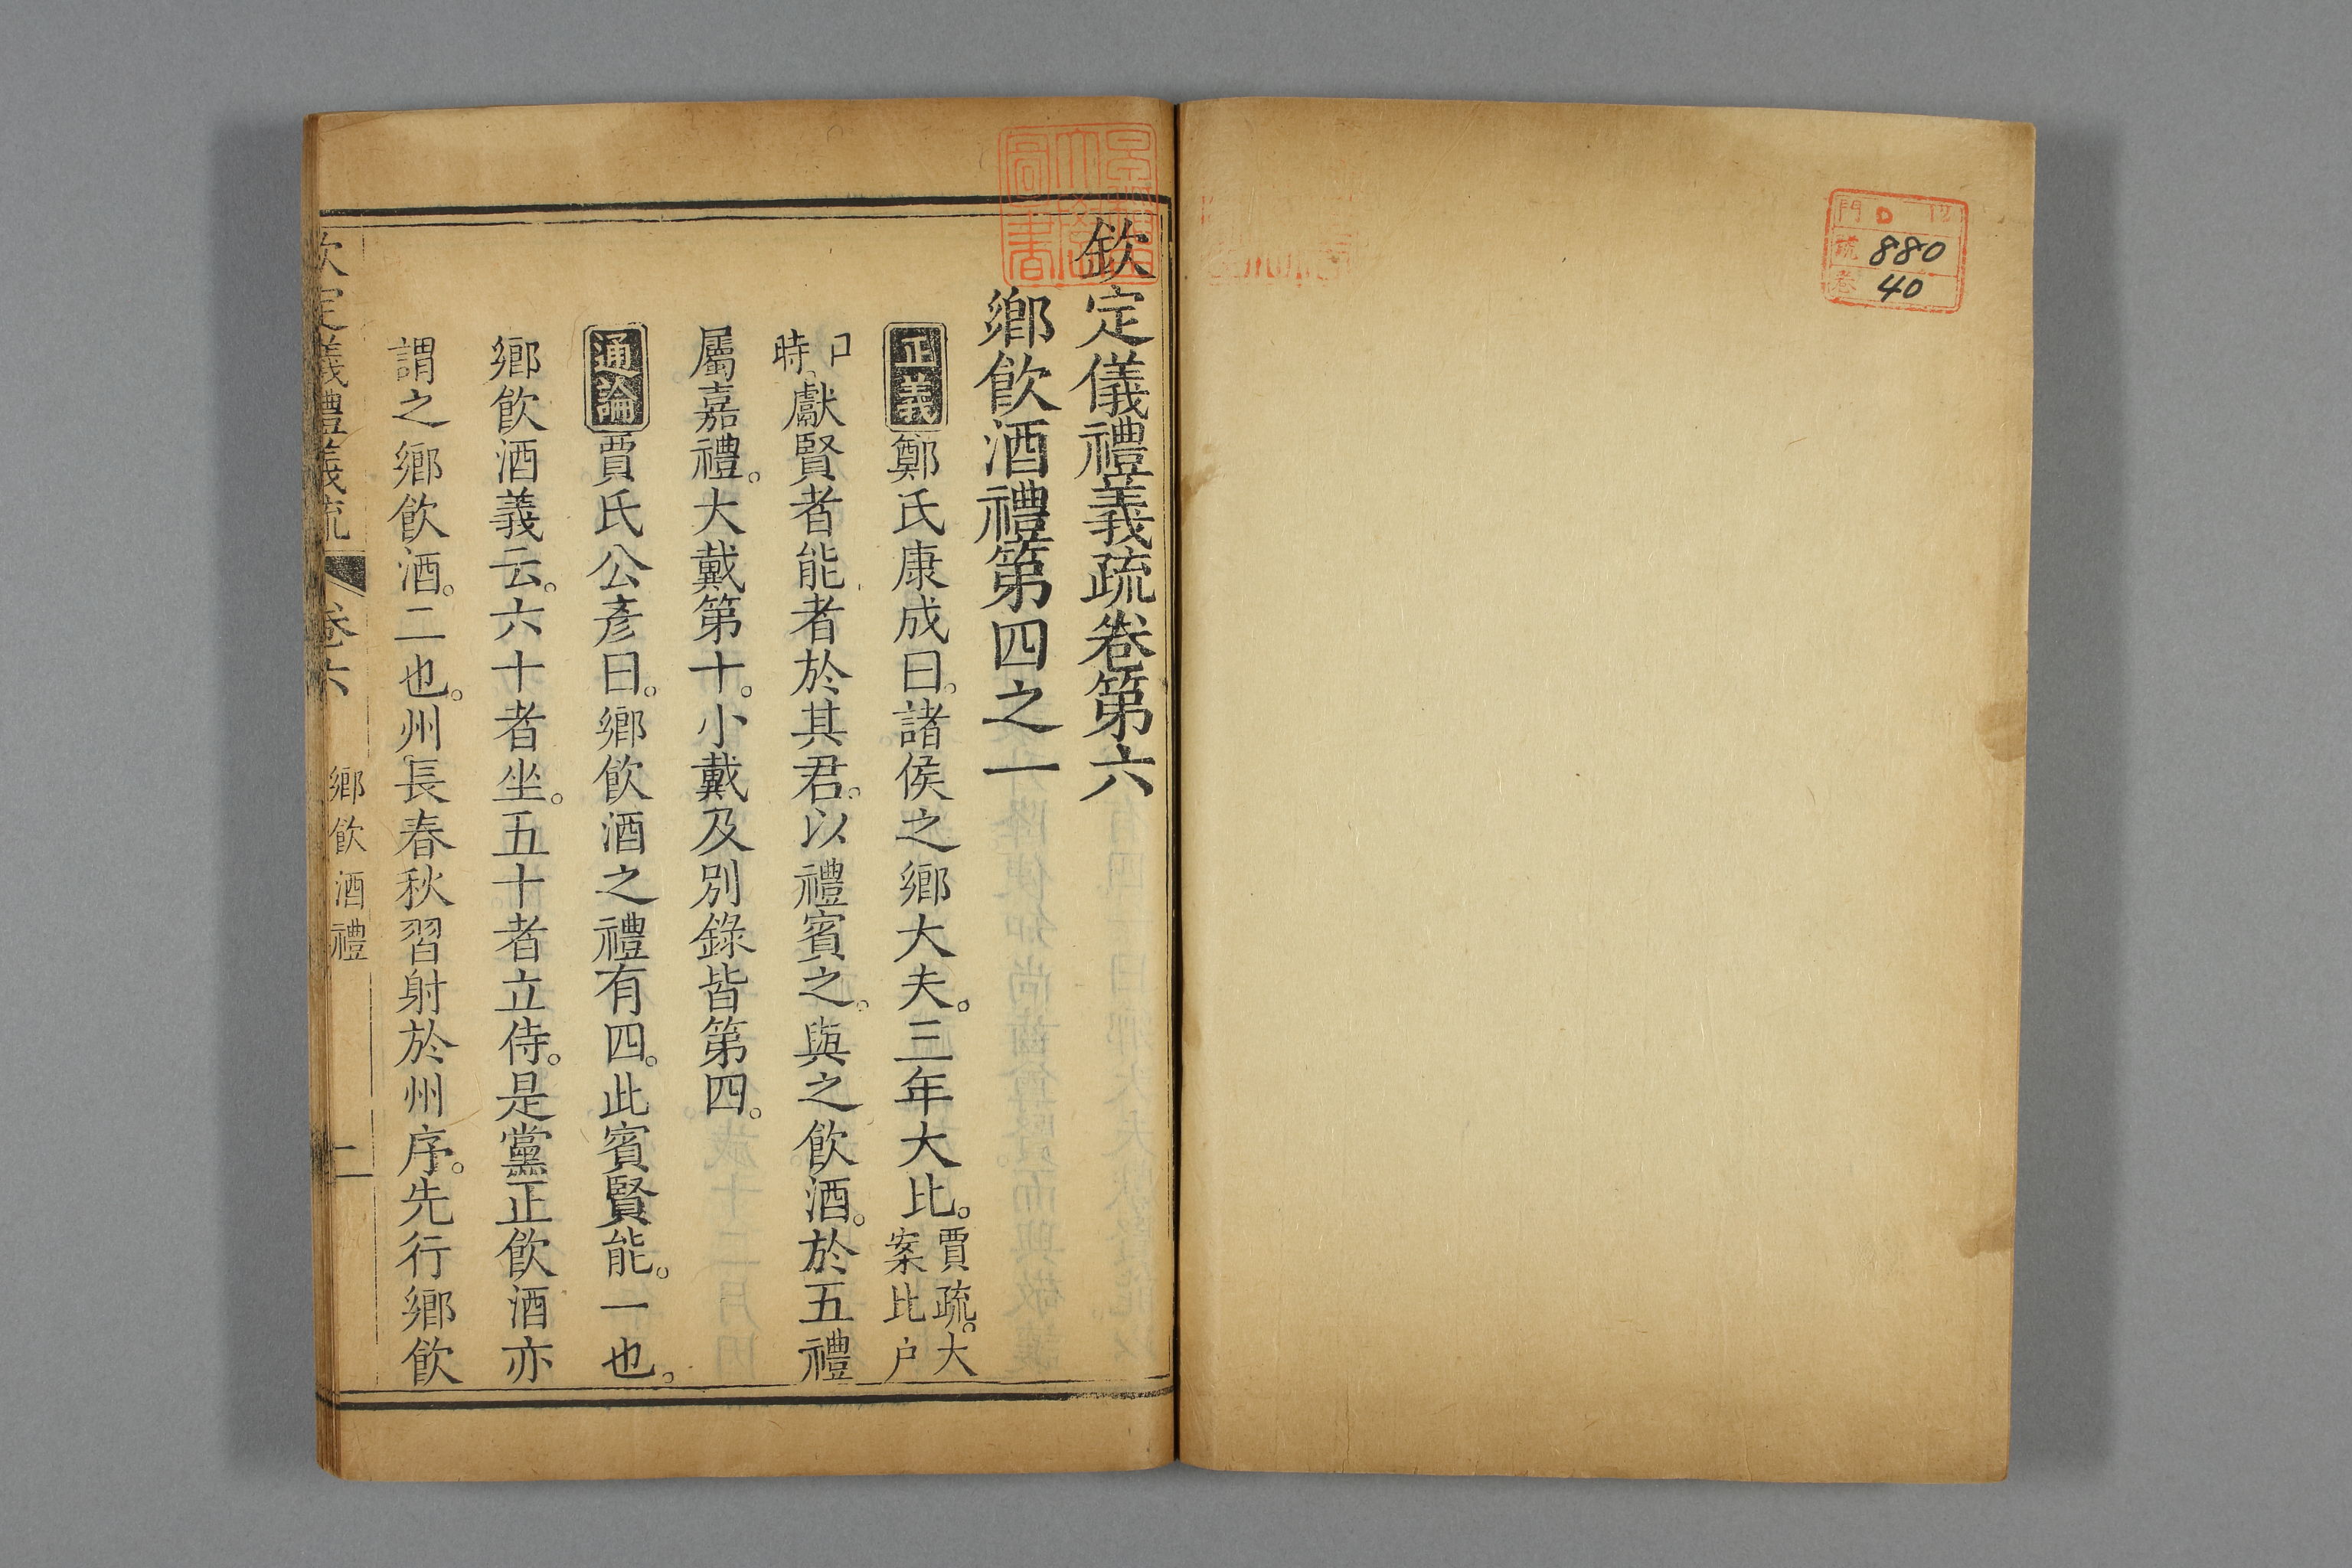 門 D 12
號 880
卷 40
欽定儀禮義疏卷第六
鄉飲酒禮第四之一
正義 鄭氏康成曰。諸侯之鄉大夫。三年大比。賈疏。大案比户
口時。獻賢者能者於其君。以禮賓之。與之飲酒。於五禮
屬嘉禮。大戴第十。小戴及別錄皆第四。
通論 賈氏公彥曰。鄉飲酒之禮有四。此賓賢能。一也。
鄉飲酒義云。六十者坐。五十者立侍。是黨正飲酒亦
謂之鄉飲酒。二也。州長春秋習射於州序。先行鄉飲
欽定儀禮義疏 卷六 鄉飲酒禮 二